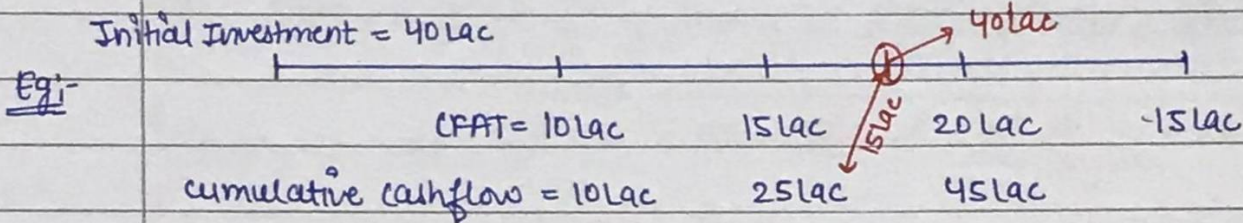 Initial Investment = 40 Lac
40 lac
Eg:-
CFAT = 10 Lac 15 Lac 20 Lac -15 Lac
15 Lac
Cumulative Cashflow = 10 Lac 25 Lac 45 Lac